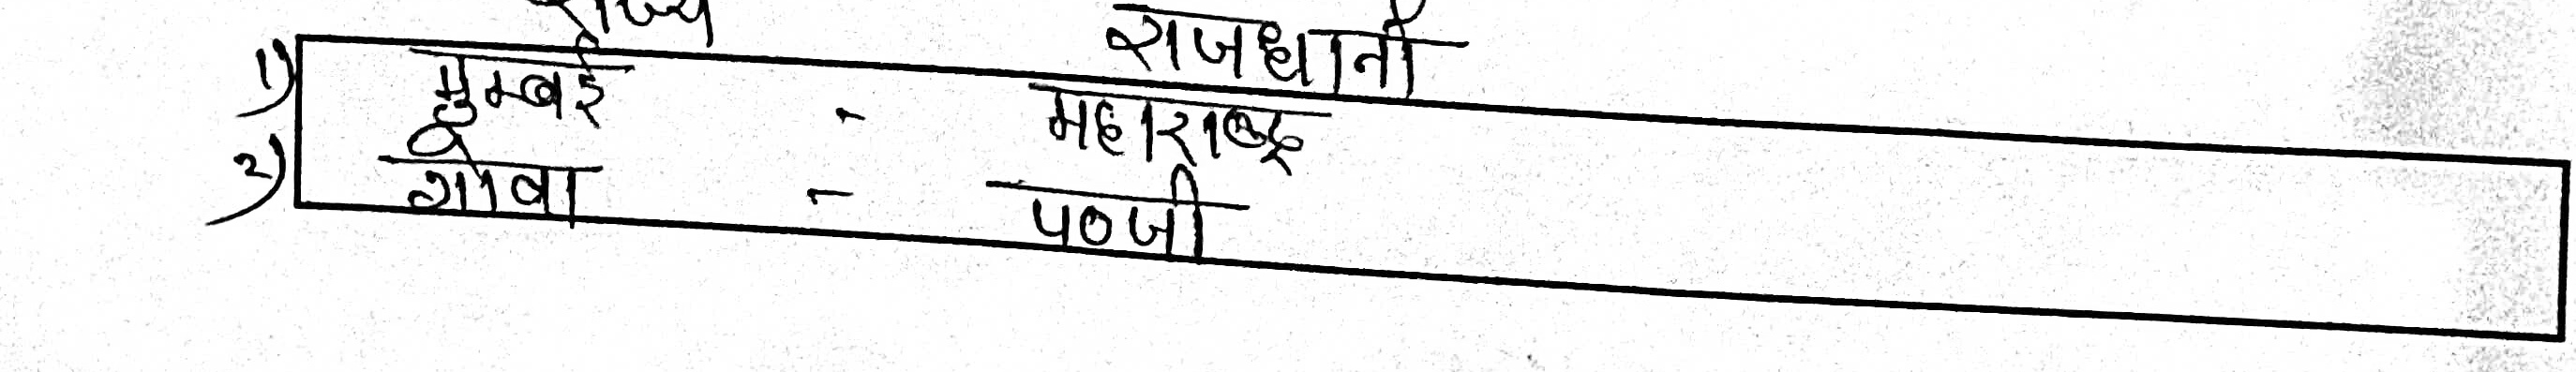 राज्य राजधानी
1) मुम्बई - महाराष्ट्र
2) गोवा - पणजी